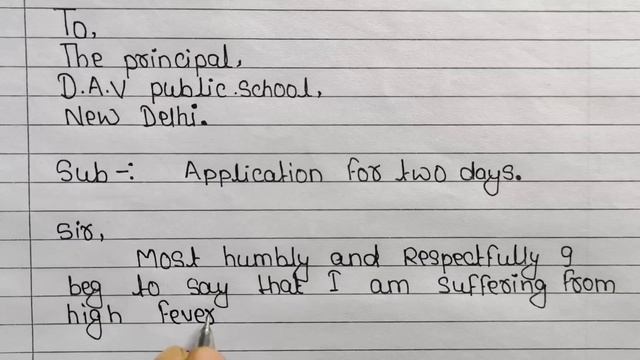 To,
The principal,
D.A.V public.school,
New Delhi.
Sub-: Application for two days.
Sir,
Most humbly and Respectfully I
beg to say that I am suffering from
high fever